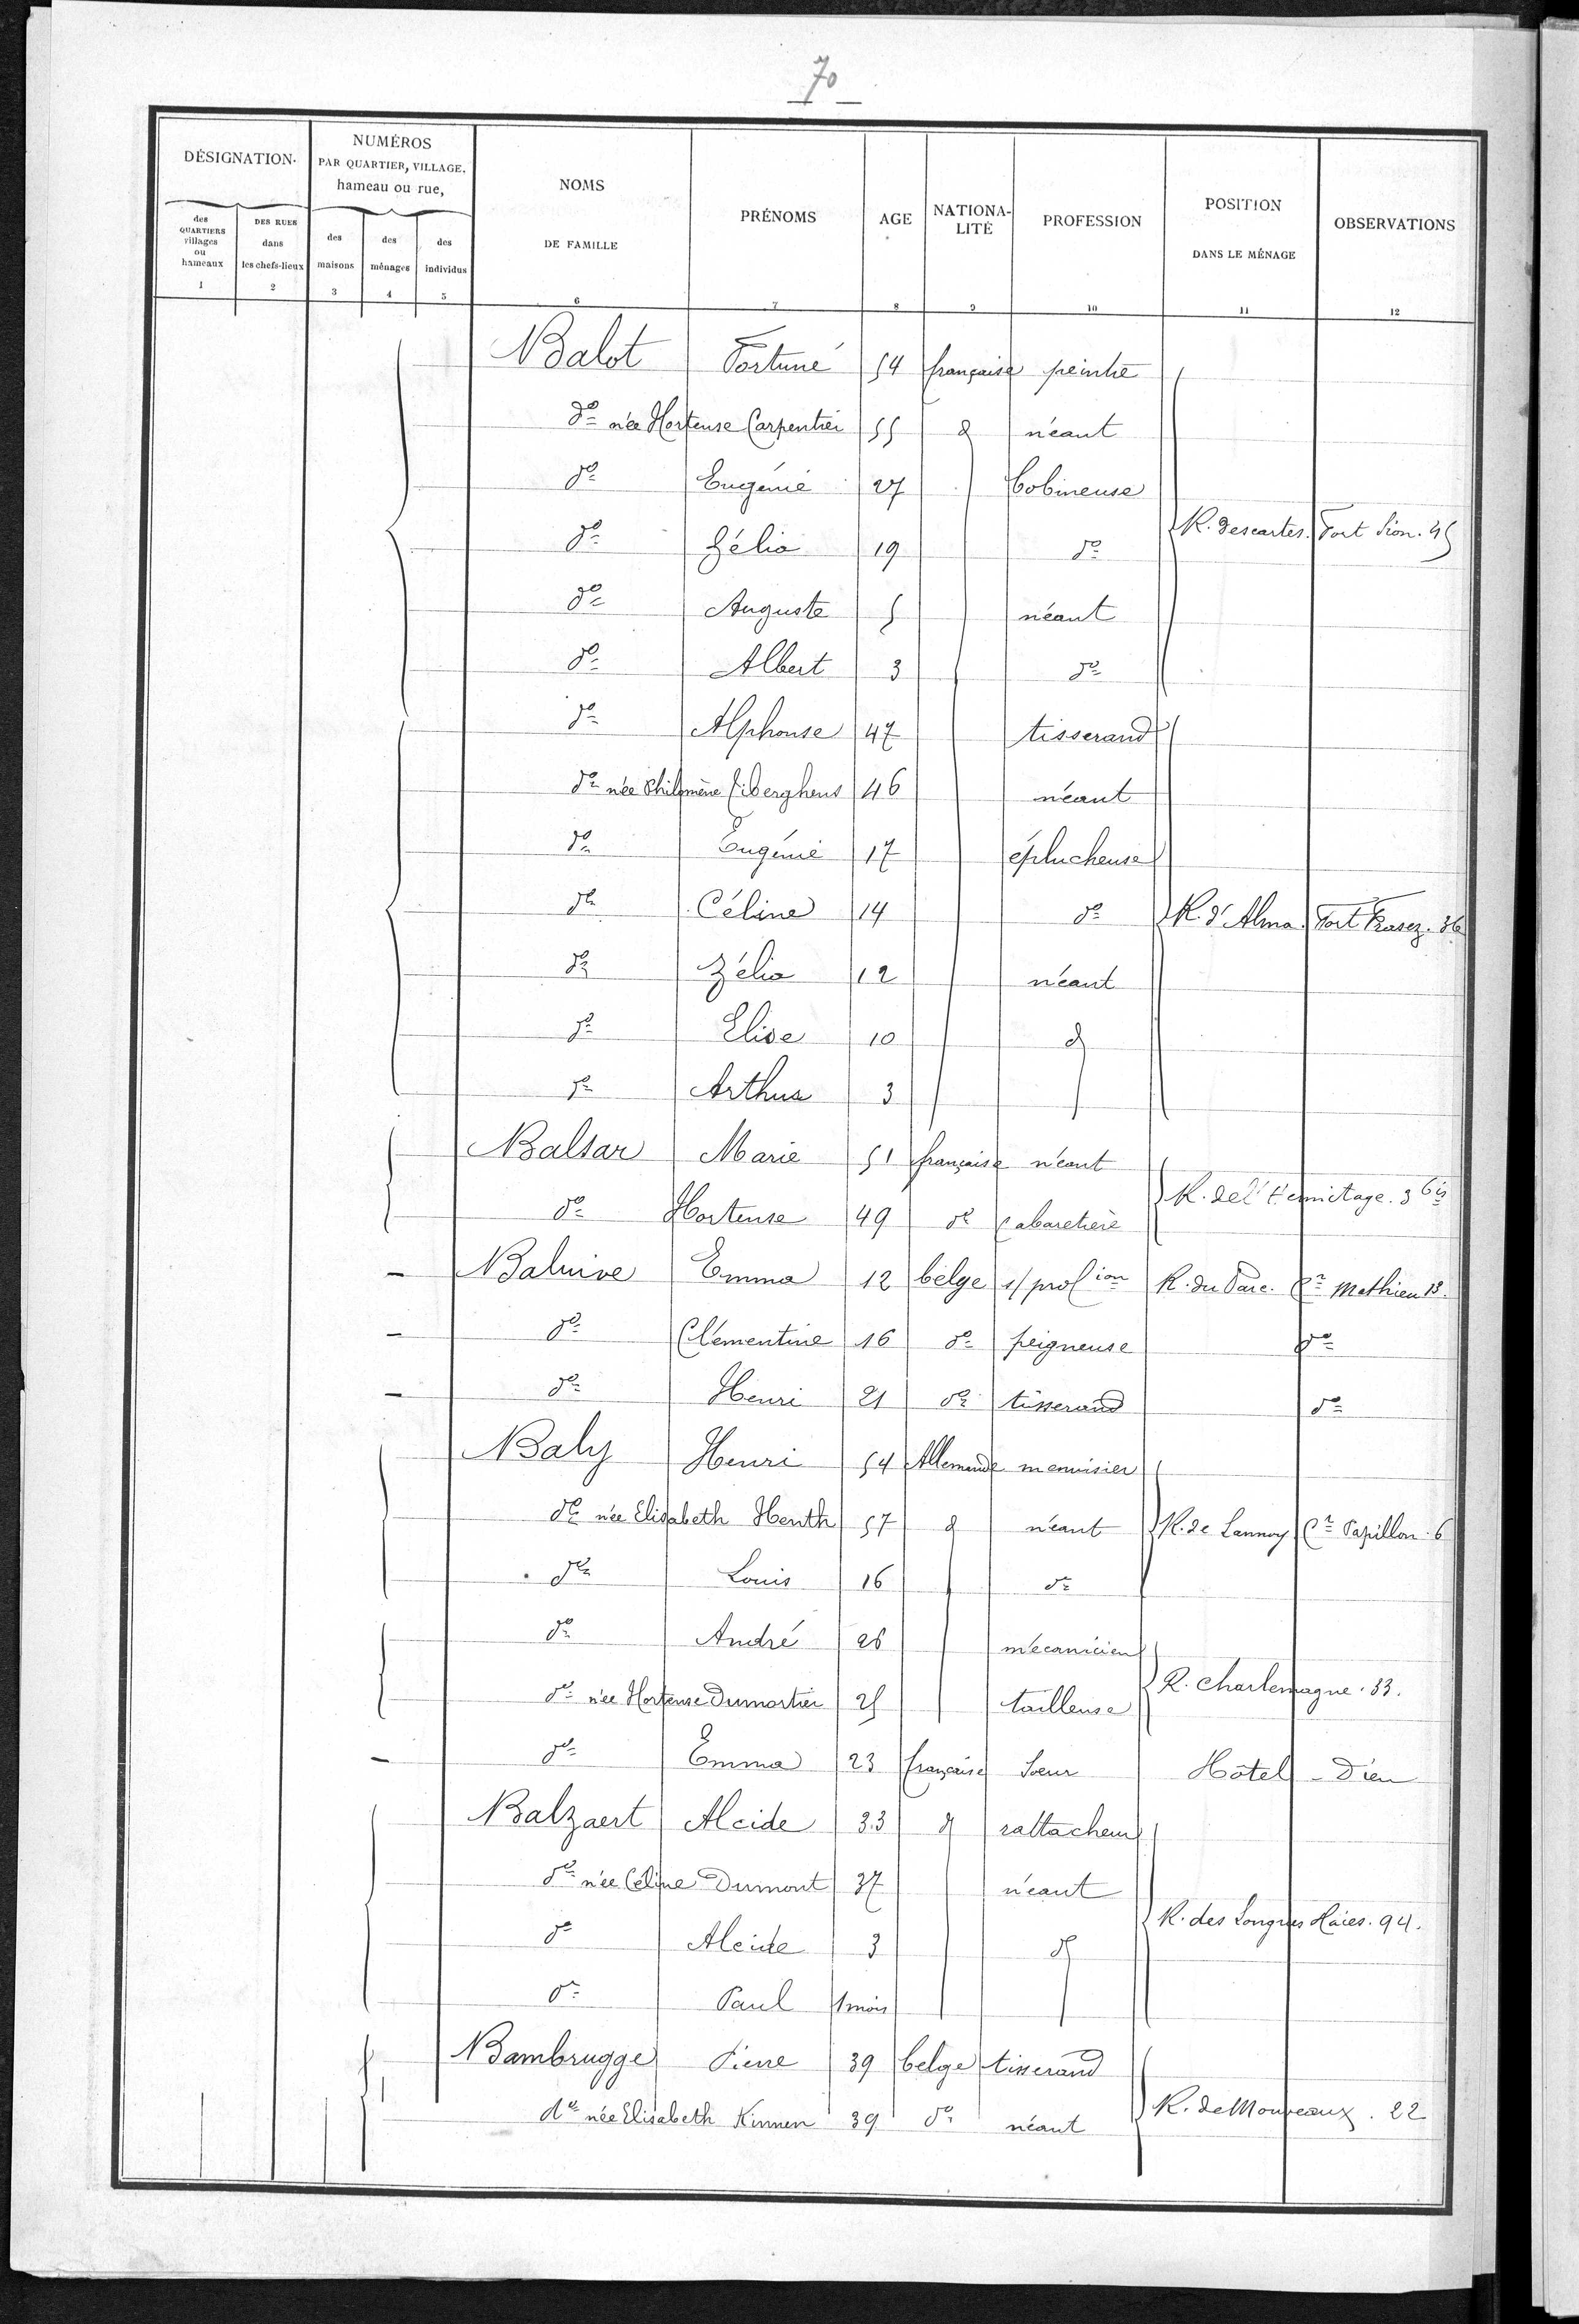 70
DÉSIGNATION.
NUMÉROS PAR QUARTIER, VILLAGE, hameau ou rue,
NOMS DE FAMILLE
PRÉNOMS
AGE
NATIONALITÉ
PROFESSION
POSITION DANS LE MÉNAGE
OBSERVATIONS
des QUARTIERS villages ou hameaux
DES RUES dans les chefs-lieux
des maisons
des ménages
des individus
1 2 3 4 5 6 7 8 9 10 11 12
Balot Fortuné 54 française peintre
do née Hortense Carpentier 55 d néant
do Eugénie 27 bobineuse
do Zélia 19 do R. Descartes. Fort Sion. 45
do Auguste 5 néant
do Albert 3 do
do Alphonse 47 tisserand
do née Philomène Tiberghens 46 néant
do Eugénie 17 éplucheuse
do Céline 14 do R. d'Alma. Fort Frasez. 36
do Zélia 12 néant
do Elise 10 d
do Arthur 3
Balsar Marie 51 française néant
R. de l'Hermitage. 3 bis
do Hortense 49 do cabaretière
Baluive Emma 12 belge s/ profion R. du Parc. Cr Mathieu 13.
do Clémentine 16 do peigneuse do
do Henri 21 do tisserand do
Baly Henri 54 Allemande menuisier
do née Elisabeth Henth 57 d néant R. de Lannoy Cr Papillon. 6
do Louis 16 do
do André 26 mécanicien
R. Charlemagne. 33.
do née Hortense Dumortier 25 tailleuse
do Emma 23 française Soeur Hôtel - Dieu
Balzaert Alcide 33 d rattacheur
do née Céline Dumont 37 néant
R. des Longues Haies. 94.
do Alcide 3 d
do Paul 1 mois
Bambrugge Pierre 39 belge tisserand
R. de Mouveaux. 22
do née Elisabeth Kinnen 39 do néant